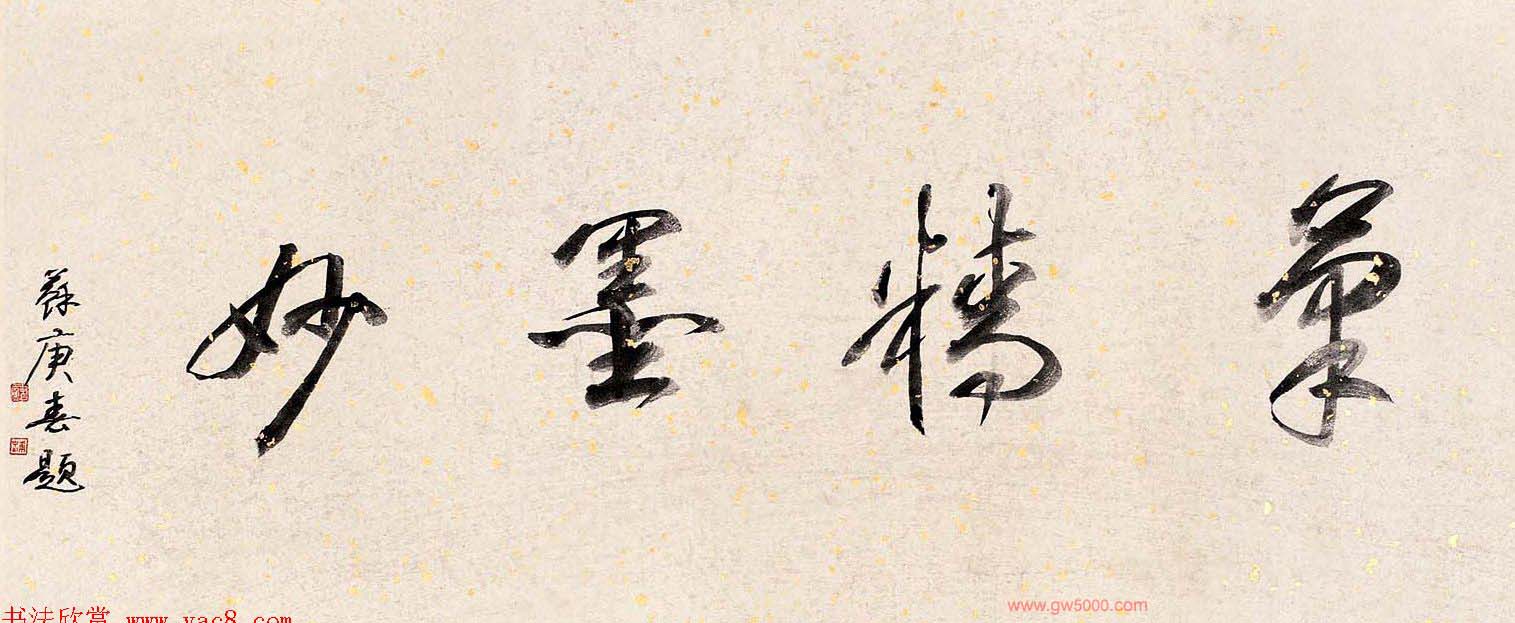 筆精墨妙
蘇庚春題
www.gw5000.com
书法欣赏 www.yac8.com